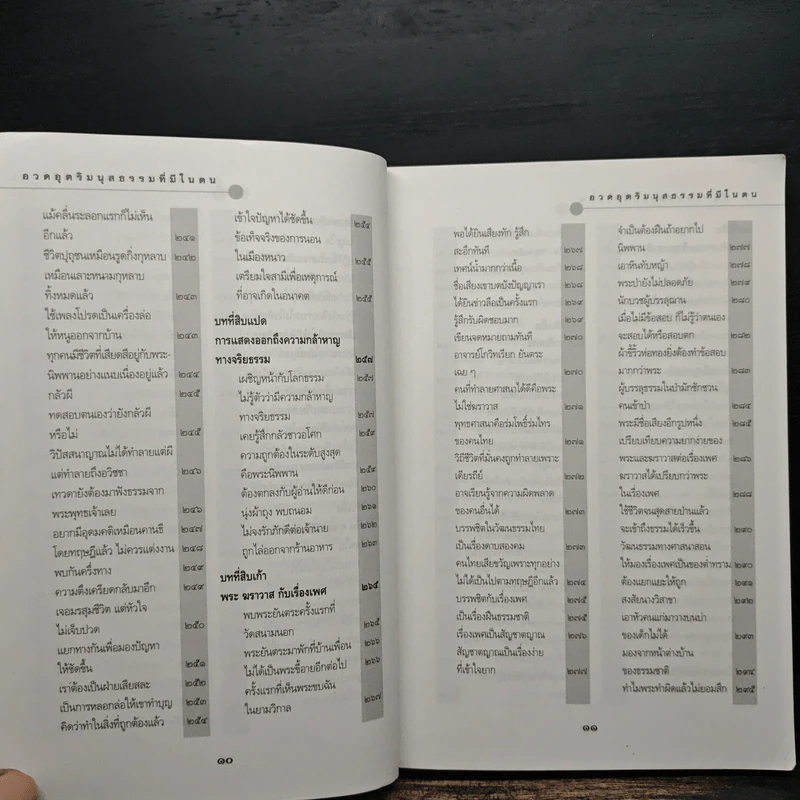 อวดอุตริมนุสธรรมที่มีในตน
แม้คลื่นระลอกแรกก็ไม่เห็น
อีกแล้ว ๒๔๑
ชีวิตปุถุชนเหมือนรูดกิ่งกุหลาบ ๒๔๒
เหมือนเลาะหนามกุหลาบ
ทิ้งหมดแล้ว ๒๔๓
ใช้เพลงโปรดเป็นเครื่องล่อ
ให้หนูออกจากบ้าน ๒๔๓
ทุกคนมีชีวิตที่เสียดสีอยู่กับพระ-
นิพพานอย่างแนบเนื่องอยู่แล้ว ๒๔๔
กลัวผี ๒๔๕
ทดสอบตนเองว่ายังกลัวผี
หรือไม่ ๒๔๕
วิปัสสนาญาณไม่ได้ทำลายแต่ผี
แต่ทำลายถึงอวิชชา ๒๔๖
เทวดายังต้องมาฟังธรรมจาก
พระพุทธเจ้าเลย ๒๔๖
อยากมีอุดมคติเหมือนคานธี ๒๔๗
โดยทฤษฎีแล้ว ไม่ควรแต่งงาน ๒๔๘
พบกันครึ่งทาง ๒๔๙
ความตึงเครียดกลับมาอีก ๒๔๙
เจอมรสุมชีวิต แต่หัวใจ
ไม่เจ็บปวด ๒๕๐
แยกทางกันเพื่อมองปัญหา
ให้ชัดขึ้น ๒๕๑
เราต้องเป็นฝ่ายเสียสละ ๒๕๒
เป็นการหลอกล่อให้เขาทำบุญ ๒๕๓
คิดว่าทำในสิ่งที่ถูกต้องแล้ว ๒๕๔
เข้าใจปัญหาได้ชัดขึ้น ๒๕๔
ข้อเท็จจริงของการนอน
ในเมืองหนาว ๒๕๕
เตรียมใจสามีเพื่อเหตุการณ์
ที่อาจเกิดในอนาคต ๒๕๕
บทที่สิบแปด
การแสดงออกถึงความกล้าหาญ
ทางจริยธรรม ๒๕๗
เผชิญหน้ากับโลกธรรม ๒๕๗
ไม่รู้ตัวว่ามีความกล้าหาญ
ทางจริยธรรม ๒๕๗
เคยรู้สึกกลัวชาวอโศก ๒๕๙
ความถูกต้องในระดับสูงสุด
คือพระนิพพาน ๒๕๙
ต้องตกลงกับผู้อ่านให้ดีก่อน ๒๖๐
นุ่งผ้าถุง พบถนอม ๒๖๑
ไม่จงรักภักดีต่อเจ้านาย ๒๖๒
ถูกไล่ออกจากร้านอาหาร ๒๖๓
บทที่สิบเก้า
พระ ฆราวาส กับเรื่องเพศ ๒๖๕
พบพระยันตระครั้งแรกที่
วัดสนามนอก ๒๖๕
พระยันตระมาพักที่บ้านเพื่อน ๒๖๖
ไม่ได้เป็นพระขี้อายอีกต่อไป ๒๖๖
ครั้งแรกที่เห็นพระขบฉัน
ในยามวิกาล ๒๖๗
๑๐
อวดอุตริมนุสธรรมที่มีในตน
พอได้ยินเสียงทัก รู้สึก
สะอึกทันที ๒๖๗
เทศน์น้ำมากกว่าเนื้อ ๒๖๘
ชื่อเสียงเขาบดบังปัญญาเรา ๒๖๘
ได้ยินข่าวลือเป็นครั้งแรก ๒๖๙
รู้สึกรับผิดชอบมาก ๒๖๙
เขียนจดหมายถามทันที ๒๗๐
อาจารย์โกวิทเรียก ยันตระ
เฉย ๆ ๒๗๐
คนที่ทำลายศาสนาได้ดีคือพระ
ไม่ใช่ฆราวาส ๒๗๑
พุทธศาสนาคือร่มโพธิ์ร่มไทร
ของคนไทย ๒๗๑
วิถีชีวิตที่มั่นคงถูกทำลายเพราะ
เดียรถีย์ ๒๗๒
อาจเรียนรู้จากความผิดพลาด
ของคนอื่นได้ ๒๗๓
บรรพชิตในวัฒนธรรมไทย
เป็นเรื่องดาบสองคม ๒๗๓
คนไทยเสียขวัญเพราะทุกอย่าง
ไม่ได้เป็นไปตามทฤษฎีอีกแล้ว ๒๗๔
บรรพชิตกับเรื่องเพศ ๒๗๕
เป็นเรื่องฝืนธรรมชาติ ๒๗๕
เรื่องเพศเป็นสัญชาตญาณ ๒๗๖
สัญชาตญาณเป็นเรื่องง่าย
ที่เข้าใจยาก ๒๗๗
จำเป็นต้องฝืนถ้าอยากไป
นิพพาน ๒๗๗
เอาหินทับหญ้า ๒๗๘
พระป่ายังไม่ปลอดภัย ๒๗๙
นักบวชผู้บรรลุฌาน ๒๘๐
เมื่อไม่มีข้อสอบ ก็ไม่รู้ว่าตนเอง
จะสอบได้หรือสอบตก ๒๘๒
ผ้าขี้ริ้วห่อทองยิ่งต้องทำข้อสอบ
มากกว่าพระ ๒๘๓
ผู้บรรลุธรรมในป่ามักชักชวน
คนเข้าป่า ๒๘๔
พระมีชื่อเสียงอีกรูปหนึ่ง ๒๘๕
เปรียบเทียบความยากง่ายของ
พระและฆราวาสต่อเรื่องเพศ ๒๘๖
ฆราวาสได้เปรียบกว่าพระ
ในเรื่องเพศ ๒๘๘
ใช้ชีวิตจนสุดสายป่านแล้ว
จะเข้าถึงธรรมได้เร็วขึ้น ๒๙๐
วัฒนธรรมทางศาสนาสอน
ให้มองเรื่องเพศเป็นของต่ำทราม ๒๙๐
ต้องแยกแยะให้ถูก ๒๙๑
สงสัยนางวิสาขา ๒๙๒
เอาหัวคนแก่มาวางบนบ่า
ของเด็กไม่ได้ ๒๙๓
มองจากหน้าต่างบ้าน
ของธรรมชาติ ๒๙๔
ทำไมพระทำผิดแล้วไม่ยอมสึก ๒๙๕
๑๑